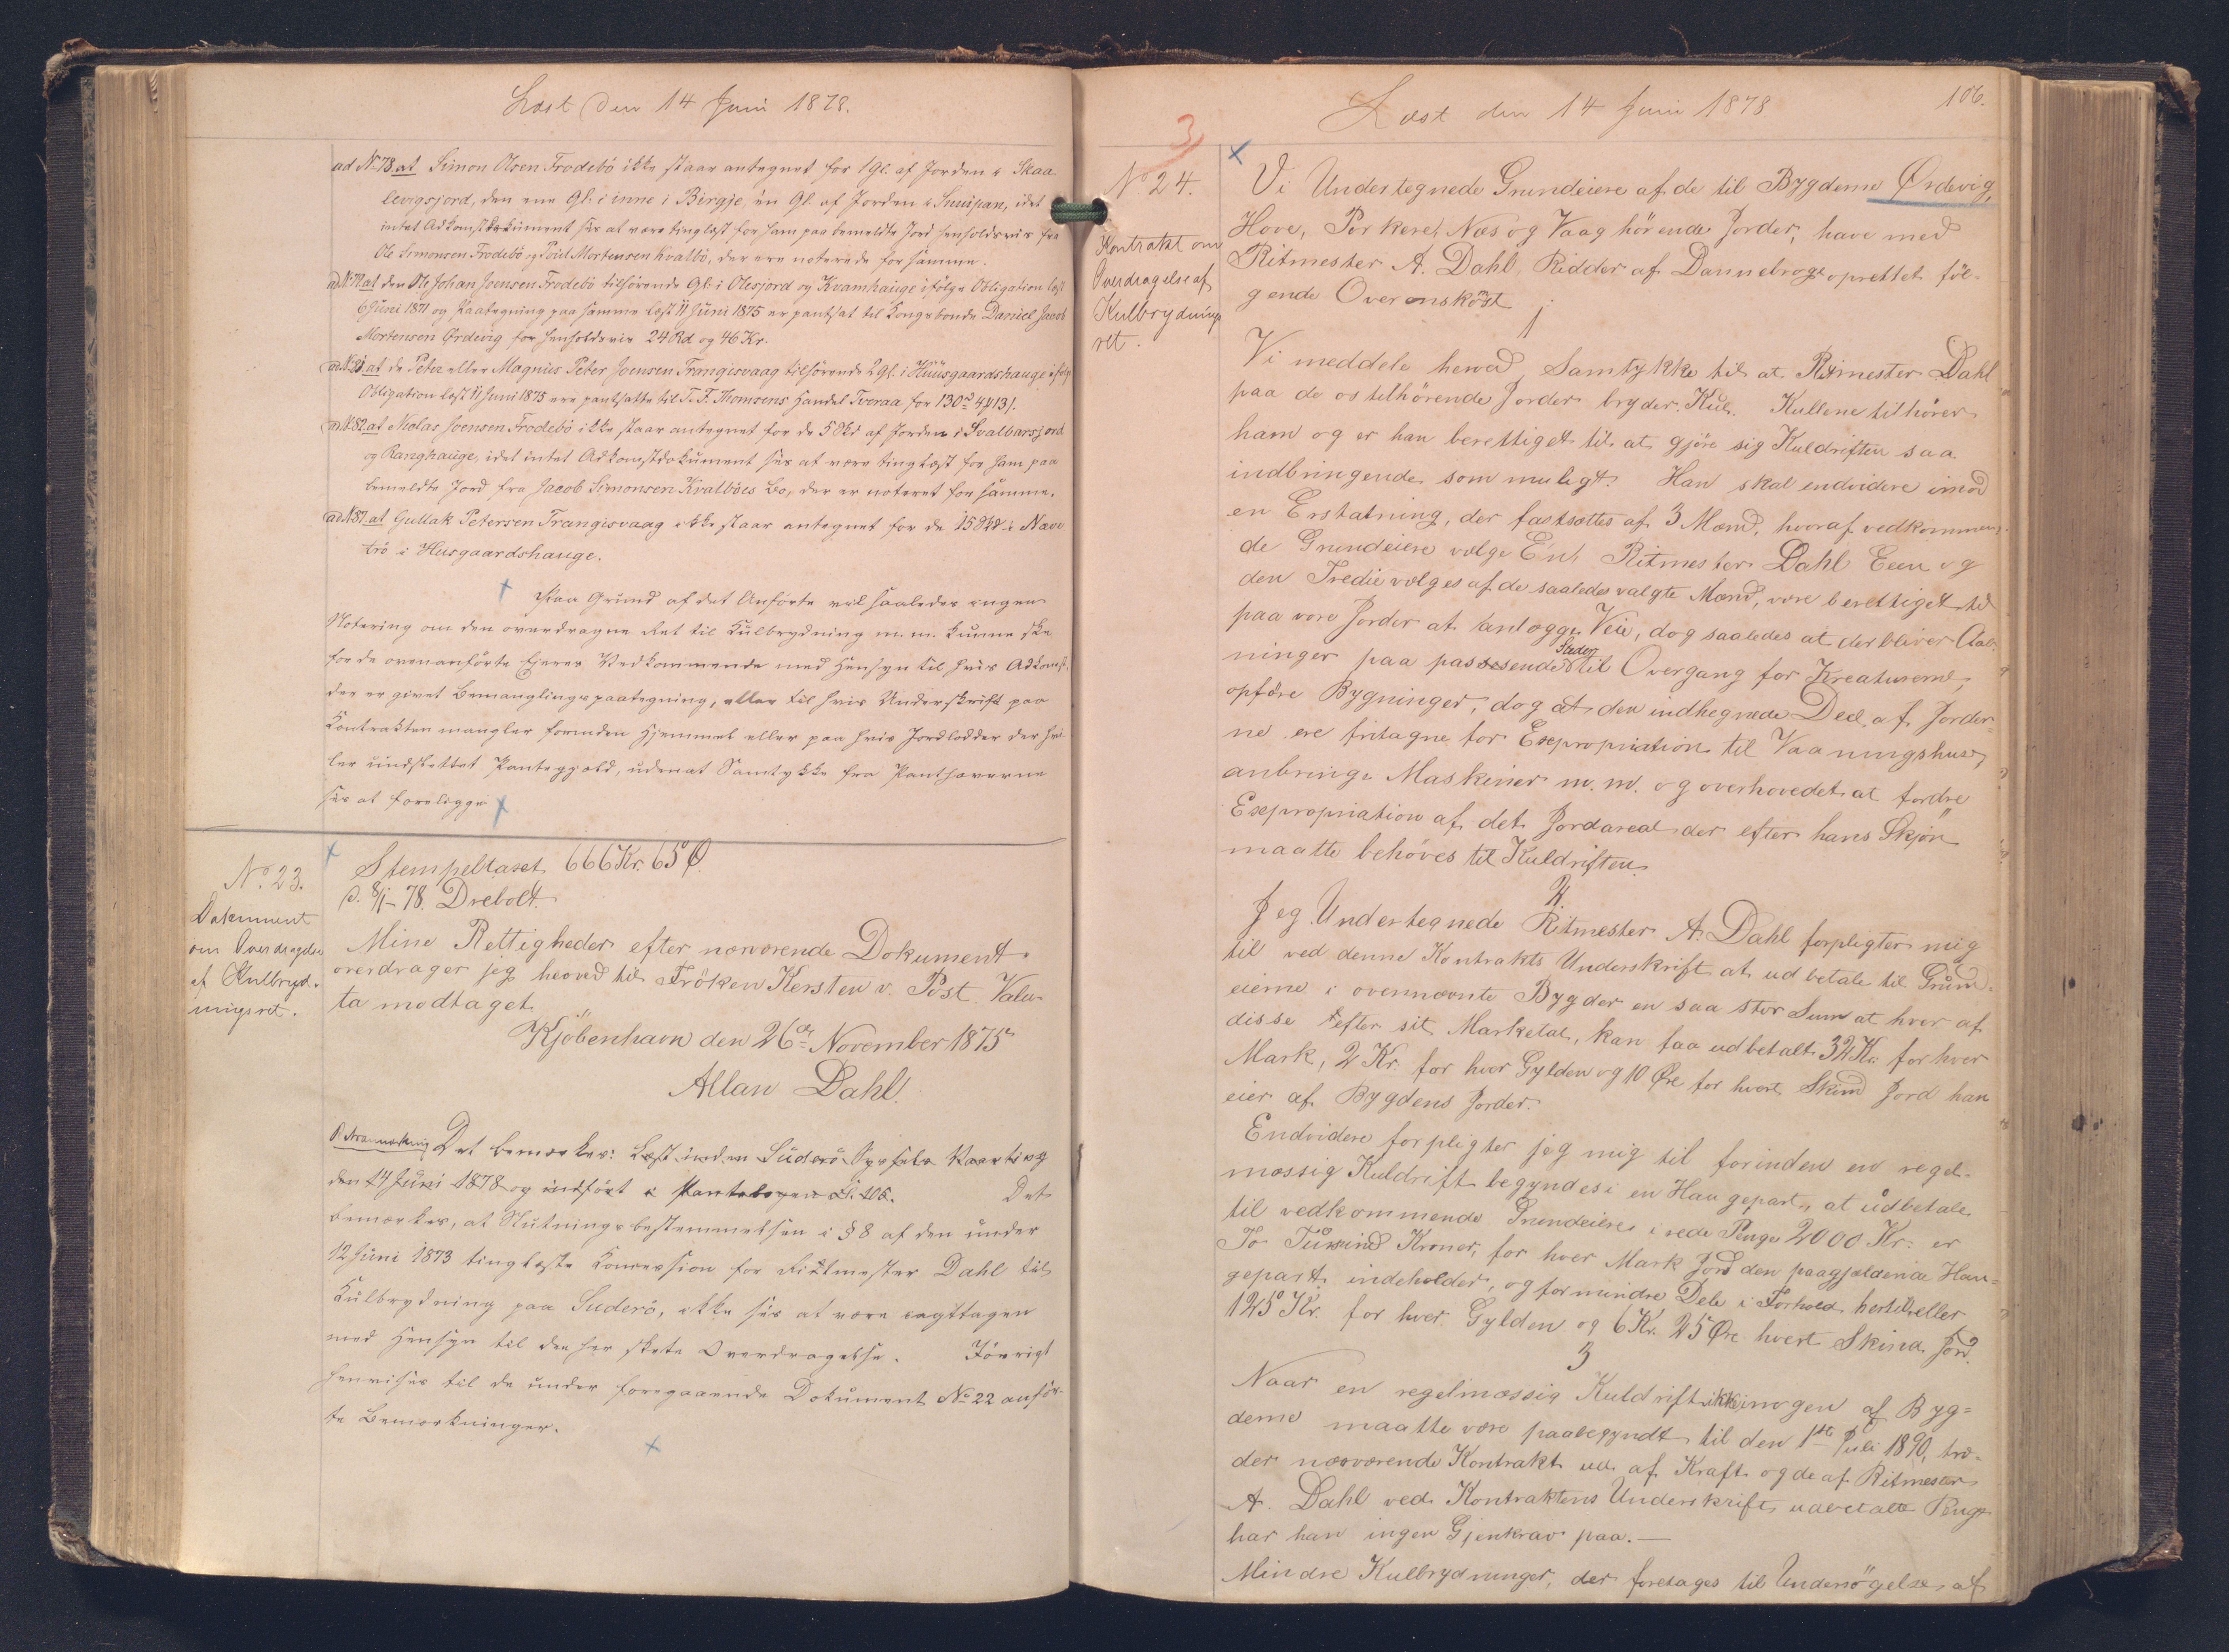 Læst den 14 Juni 1878.
ad No 78 at Simon Olsen Frodebö ikke staar antegnet for 1 Gl. af Jorden i Skaa
levigsjord, den ene Gl. i inne i Birgje, en Gl. af Jorden i Suuipan, idet
intet Adkomstdokument ses at være tinglæst for ham paa bemeldte Jord henholdsvis fra
Ole Simonsen Frodebö og Poul Mortensen Kvalbö, der ere noterede for samme.
ad No 79 at den Ole Johan Joensen Frodebö tilhörende Gl. i Olesjord og Kvamhauge ifölge Obligation læst
6 Juni 1871 og Paategning paa samme læst 11 Juni 1875 er pantsat til Kongsbonde Daniel Jacob
Mortensen Ørdevig for henholdsvis 24 Rd og 46 Kr.
ad No 81 at de Peter eller Magnus Peter Joensen Trangisvaag tilhörende 2 Gl. i Huusgaardshauge ifölge
Obligation læst 11 Juni 1875 ere pantsatte til T. F. Thomsens Handel Tveraa for 130 rd 4 ₥ 13 s.
ad No 82 at Niclas Joensen Frodebö ikke staar antegnet for de 5 Skd af Jorden i Svalbarsjord
og Ranghauge, idet intet Adkomstdokument ses at være tinglæst for ham paa
bemeldte Jord fra Jacob Simonsen Kvalböes Bo, der er noteret for samme.
ad No 87 at Gullak Petersen Trangisvaag ikke staar antegnet for de 15 Skd i Næve
trö i Husgaardshauge.
Paa Grund af det Anförte vil saaledes ingen
Notering om den overdragne Ret til Kulbrydning m. m. kunne ske
for de ovenanförte Ejeres Vedkommende med Hensyn til hvis Adkomst
der er givet Bemanglingspaategning, eller til hvis Underskrift paa
Kontrakten mangler forinden Hjemmel eller paa hvis Jordlodder der hvi
ler uindslettet Pantegjæld, uden at Samtykke fra Panthaverne
ses at foreligge
No 23.
Dokument
om Overdragelse
af Kulbryd-
ningsret.
Stempeltaxt 666 Kr. 65 Ø.
d. 8/1-78. Drebolt.
Mine Rettigheder efter nærværende Dokument
overdrager jeg herved til Fröken Kersten v. Post. Valu-
ta modtaget.
Kjöbenhavn den 26de November 1875
Allan Dahl.
Det bemærkes: Læst inden Suderö Syssels Vaarting
den 14 Juni 1878 og indfört i Pantebogen Fol. 106. Det
bemærkes, at Slutningsbestemmelsen i § 8 af den under
12 Juni 1873 tinglæste Concession for Ritmester Dahl til
Kulbrydning paa Suderö, ikke ses at være iagttagen
med Hensyn til den her skete Overdragelse. Iövrigt
henvises til de under foregaaende Dokument No 22 anför-
te Bemærkninger.
Læst den 14 Juni 1878
106.
3
No 24.
Kontrakt om
Overdragelse af
Kulbrydnings
ret.
Vi Undertegnede Grundeiere af de til Bygderne Ørdevig,
Hove, Porkeret, Næs og Vaag hörende Jorder, have med
Ritmester A. Dahl, Ridder af Dannebroge oprettet föl-
gende Overenskomst
1
Vi meddele herved Samtykke til at Ritmester Dahl
paa de os tilhörende Jorder bryder Kul. Kullene tilhörer
ham og er han berettiget til at gjöre sig Kuldriften saa
indbringende som muligt. Han skal endvidere imod
en Erstatning, der fastsættes af 3 Mænd, hvoraf vedkommen-
de Grundeiere vælge En, Ritmester Dahl Een og
den Tredie vælges af de saaledes valgte Mænd, være berettiget til
paa vore Jorder at anlægge Veie, dog saaledes at der bliver Aab-
ninger paa passende Steder til Overgang for Kreaturerne,
opföre Bygninger, dog at den indhegnede Deel af Jorder-
ne ere fritagne for Expropriation til Vaaningshuse,
anbringe Maskiner m. m. og overhovedet at fordre
Expropriation af det Jordareal der efter hans Skjön
maatte behöves til Kuldriften.
2.
Jeg Undertegnede Ritmester A. Dahl forpligter mig
til ved denne Kontrakts Underskrift at udbetale til Grund-
eierne i ovennævnte Bygder en saa stor Sum at hver af
disse efter sit Marketal, kan faa udbetalt 32 Kr. for hver
Mark, 2 Kr. for hver Gylden og 10 Øre for hvert Skind Jord han
eier af Bygdens Jorder.
Endvidere forpligter jeg mig til forinden en regel-
mæssig Kuldrift begyndes i en Haugepart, at udbetale
til vedkommende Grundeiere i rede Penge 2000 Kr. er
To Tusind Kroner, for hver Mark Jord den paagjældende Hau-
gepart indeholder, og for mindre Dele i Forhold hertil eller
125 Kr. for hver Gylden og 6 Kr. 25 Øre hvert Skind Jord.
3
Naar en regelmæssig Kuldrift ikke i nogen af Byg-
derne maatte være paabegyndt til den 1ste Juli 1890, træ-
der nærværende Kontrakt ud af Kraft og de af Ritmester
A. Dahl ved Kontraktens Underskrift udbetalte Penge
har han ingen Gjenkrav paa.—
Mindre Kulbrydninger, der foretages til Undersögelse af